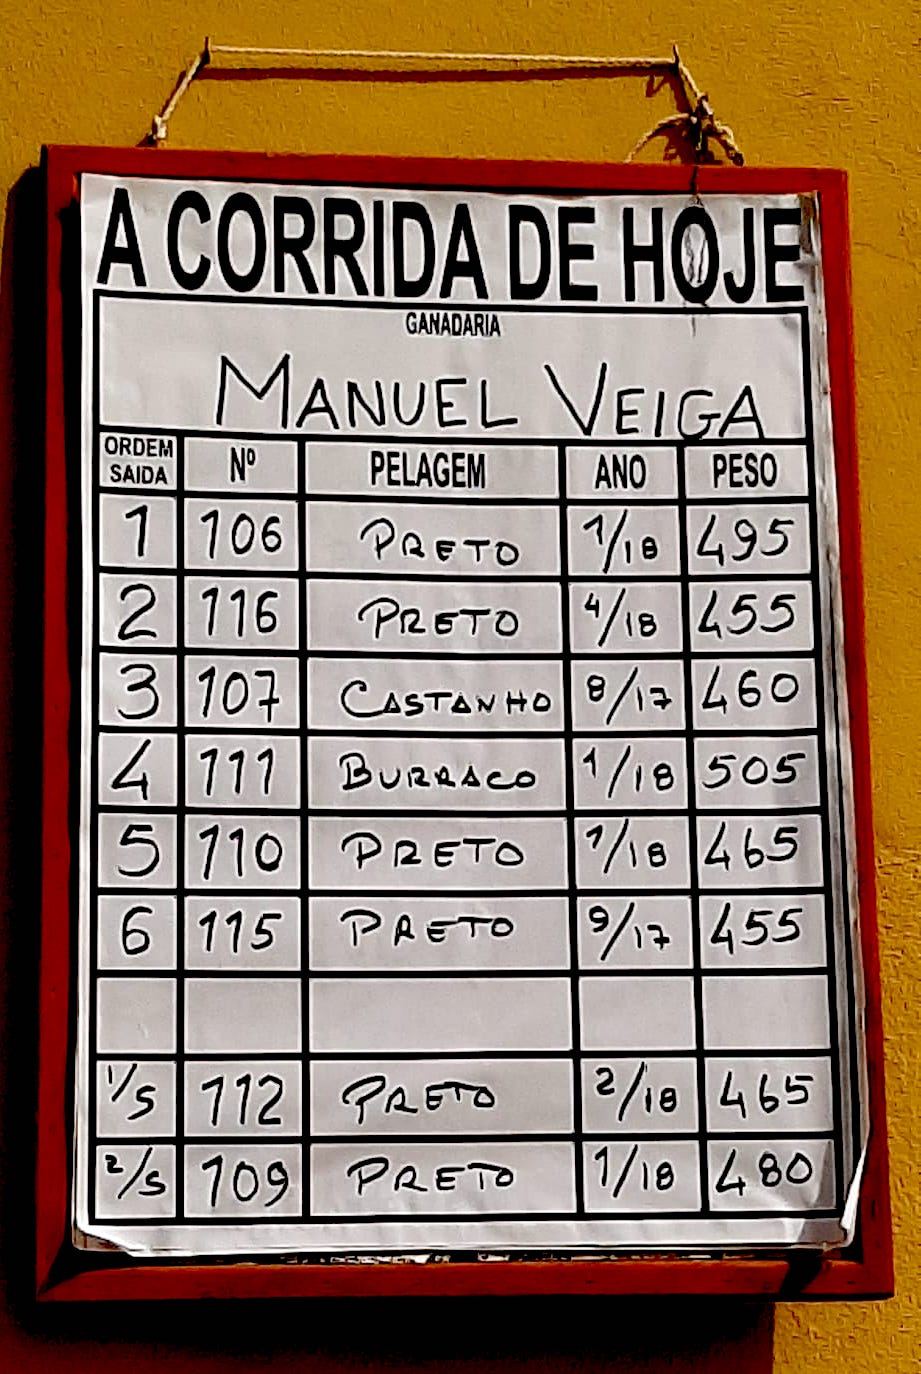 A CORRIDA DE HOJE
GANADARIA
MANUEL VEIGA
ORDEM SAIDA Nº PELAGEM ANO PESO
1 106 PRETO 1/18 495
2 116 PRETO 4/18 455
3 107 CASTANHO 8/17 460
4 111 BURRACO 1/18 505
5 110 PRETO 1/18 465
6 115 PRETO 9/17 455
1/S 112 PRETO 2/18 465
2/S 109 PRETO 1/18 480